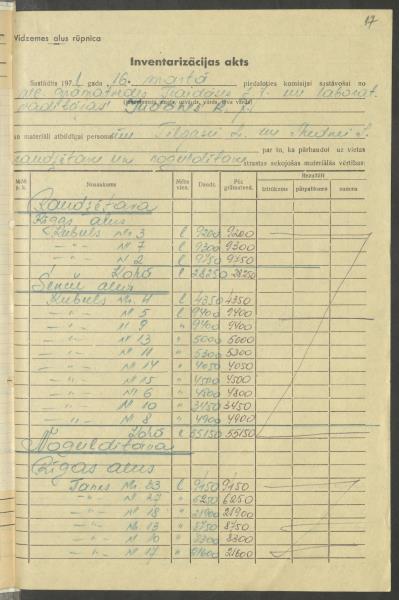 17
Vidzemes alus rūpnica
Inventarizācijas akts
Sastādīts 1971. gada 16. martā piedaloties komisijai sastāvošai no
vec. grāmatvedes Traidās un laborat.
vadītājas
(ieņemamais amats, uzvārds, vārds, tēva vārds)
un materiāli atbildīgai personai un
par to, ka pārbaudot uz vietas
raudzētavā un nogulditavā atrastas sekojošas materiālās vērtības:
N/N p. k. Nosaukums Mērv. vien. Daudz. Pēc grāmatvež. Rezultāti
iztrūkums pārpalikums summa
Raudzētava
Rīgas alus
Kubuls № 3 l 9200 9200
—"— № 7 9300 9300
—"— № 2 l 9750 9750
Kopā l 28250 28250
Senču alus
Kubuls № 4 l 4350 4350
—"— № 5 l 9400 9400
—"— № 9 " 9400 9400
—"— № 13 " 5000 5000
—"— № 11 " 5300 5300
—"— № 14 " 4050 4050
—"— № 15 " 4500 4500
—"— № 6 " 4800 4800
—"— № 10 " 3450 3450
—"— № 8 " 4900 4900
Kopā l 55150 55150
Noguldītava
Rīgas alus
Tanes № 23 l 9150 9150
—"— № 27 " 6250 6250
—"— № 18 " 21900 21900
—"— № 13 " 8750 8750
—"— № 10 " 8300 8300
—"— № 17 " 21600 21600